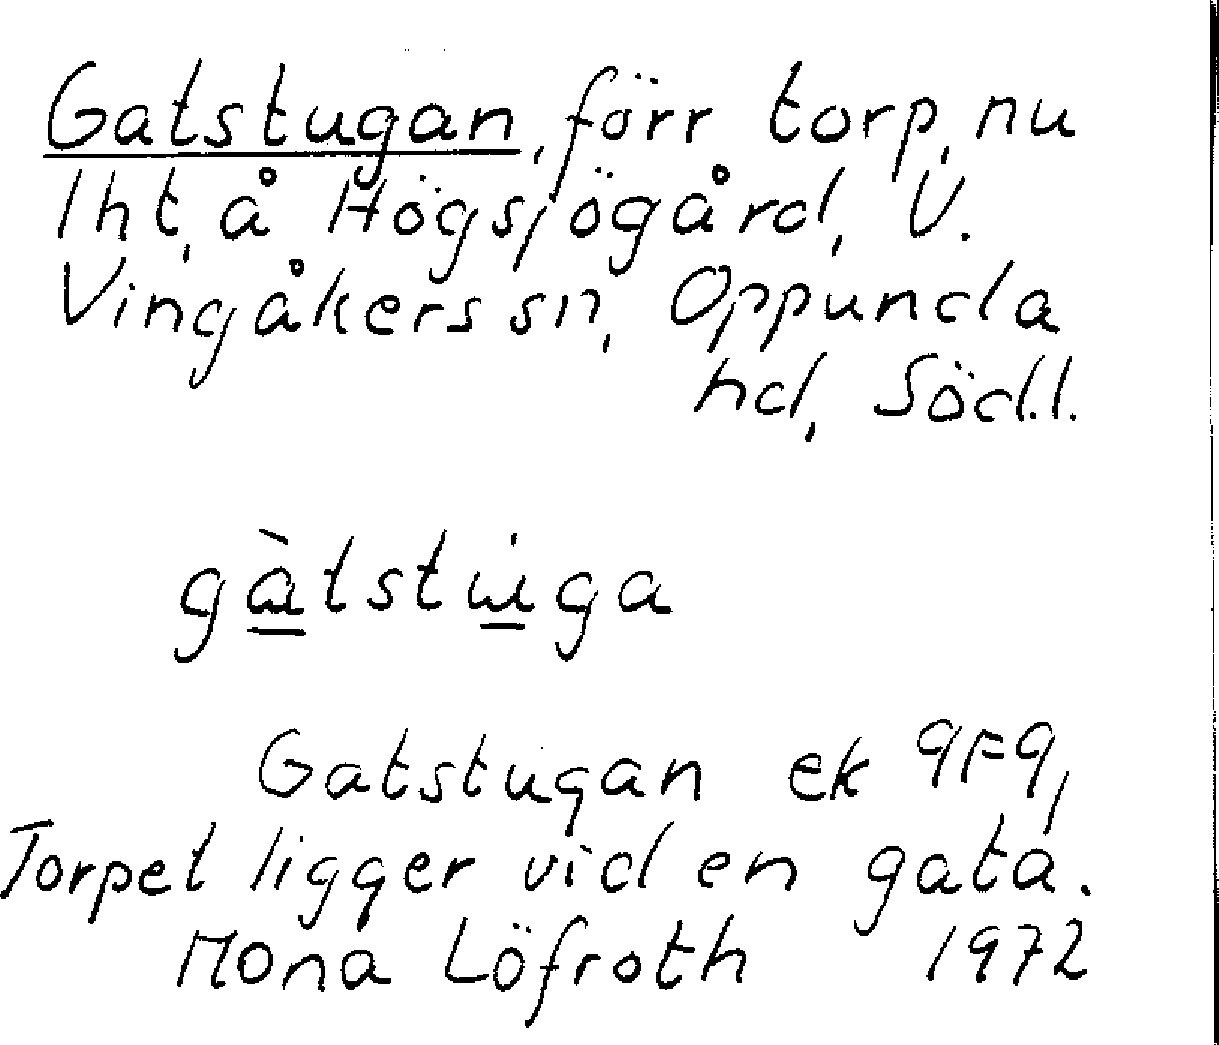 Gatstugan, förr torp, nu
lht, å Högsjögård, V.
Vingåkers sn, Oppunda
hd, Söd.l.
gàtstu̇ga
Gatstugan ek 9F9,
Torpet ligger vid en gata.
Mona Löfroth 1972